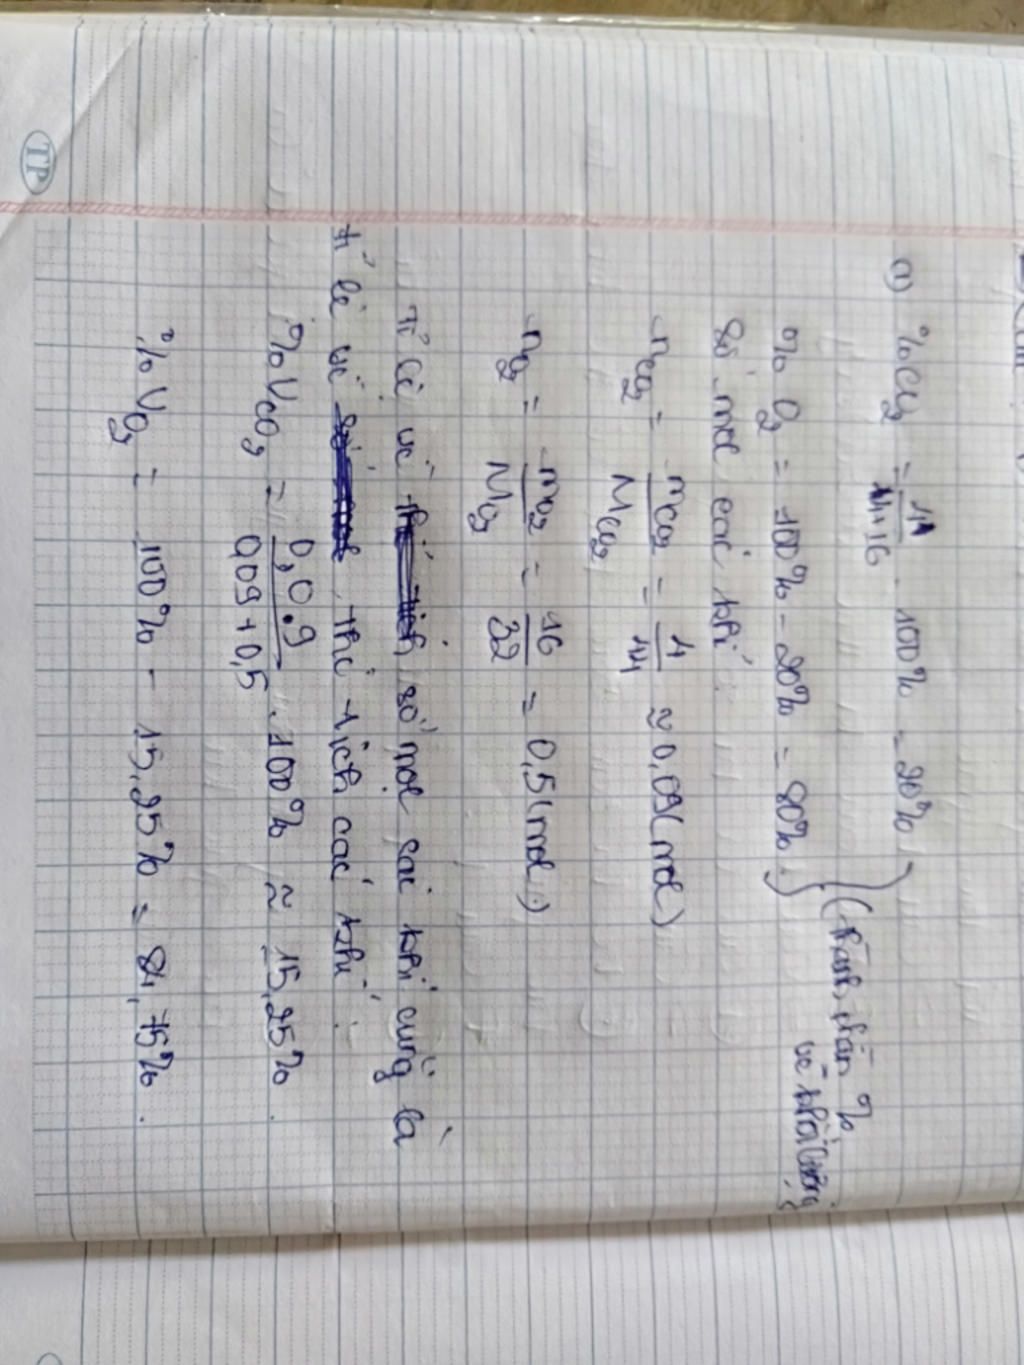 a) %CO2 = 4/4+16 . 100% = 20%
% O2 = 100% - 20% = 80%.
(thành phần %
về khối lượng
số mol các khí:
nCO2 = mCO2/MCO2 = 4/44 ≈ 0,09 (mol)
nO2 = mO2/MO2 = 16/32 = 0,5 (mol)
tỉ lệ về số mol các khí cũng là
tỉ lệ về thể tích các khí:
%VCO2 = 0,09/0,09+0,5 . 100% ≈ 15,25%.
%VO2 = 100% - 15,25% = 84,75%.
TP